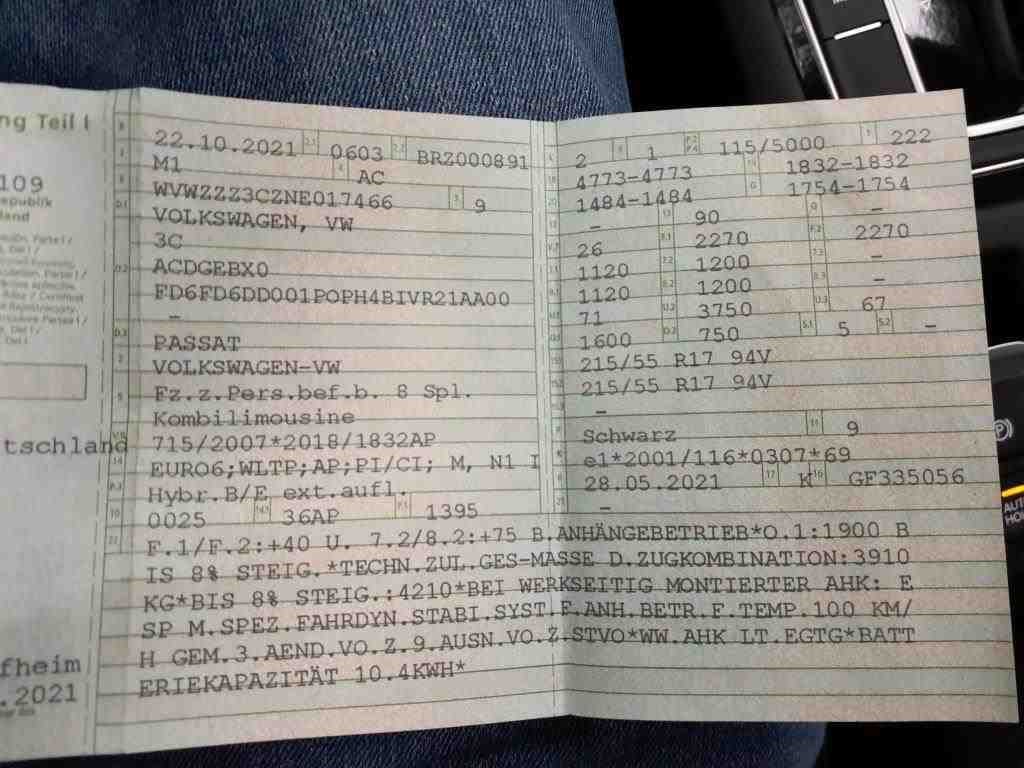 ng Teil I
109
epublik
land
tschland
fheim
.2021
22.10.2021 2.1 0603 2.2 BRZ000891
M1 AC
WVWZZZ3CZNE017466 3 9
VOLKSWAGEN, VW
3C
ACDGEBX0
FD6FD6DD001POPH4BIVR21AA00
-
PASSAT
VOLKSWAGEN-VW
Fz.z.Pers.bef.b. 8 Spl.
Kombilimousine
715/2007*2018/1832AP
EURO6;WLTP;AP;PI/CI; M, N1 I
Hybr.B/E ext.aufl.
0025 36AP 1395
2 1 P.2 P.4 115/5000 T 222
4773-4773 1832-1832
1484-1484 G 1754-1754
- 90 -
26 F.1 2270 F.2 2270
1120 7.2 1200 7.3 -
1120 8.2 1200 8.3 -
71 U.2 3750 U.3 67
1600 O.2 750 S.1 5 S.2 -
215/55 R17 94V
215/55 R17 94V
-
Schwarz 11 9
e1*2001/116*0307*69
28.05.2021 17 K 16 GF335056
-
F.1/F.2:+40 U. 7.2/8.2:+75 B.ANHÄNGEBETRIEB*O.1:1900 B
IS 8% STEIG.*TECHN.ZUL.GES-MASSE D.ZUGKOMBINATION:3910
KG*BIS 8% STEIG.:4210*BEI WERKSEITIG MONTIERTER AHK: E
SP M.SPEZ.FAHRDYN.STABI.SYST.F.ANH.BETR.F.TEMP.100 KM/
H GEM.3.AEND.VO.Z.9.AUSN.VO.Z.STVO*WW.AHK LT.EGTG*BATT
ERIEKAPAZITÄT 10.4KWH*